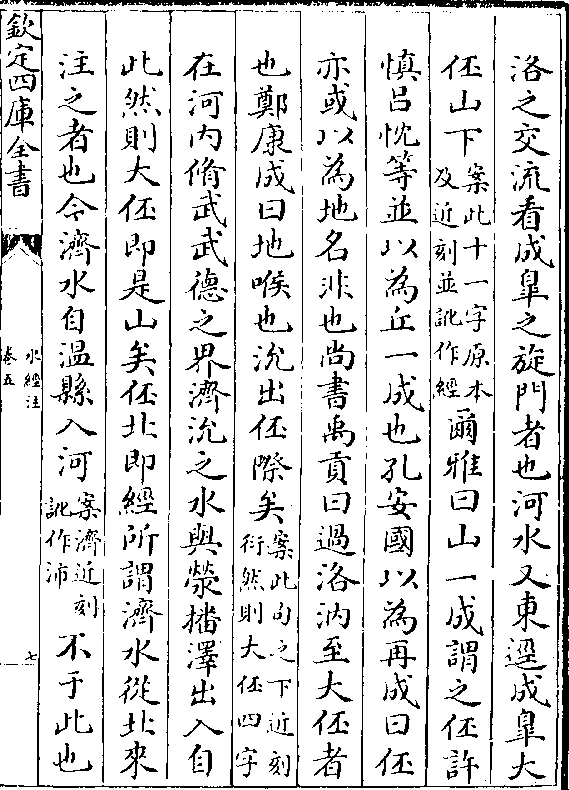 洛之交流看成臯之旋門者也河水又東逕成臯大
伾山下案此十一字原本及近刻並訛作經爾雅曰山一成謂之伾許
慎吕忱等並以為丘一成也孔安國以為再成曰伾
亦或以為地名非也尚書禹貢曰過洛汭至大伾者
也鄭康成曰地喉也沇出伾際矣案此句之下近刻衍然則大伾四字
在河内脩武武德之界濟沇之水與滎播澤出入自
此然則大伾即是山矣伾北即經所謂濟水從北來
注之者也今濟水自温縣入河案濟近刻訛作沛不于此也
欽定四庫全書
水經注
卷五
七